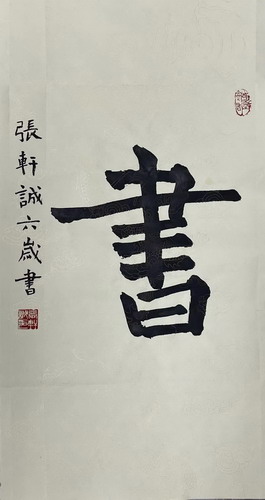 書
張軒誠六歲書